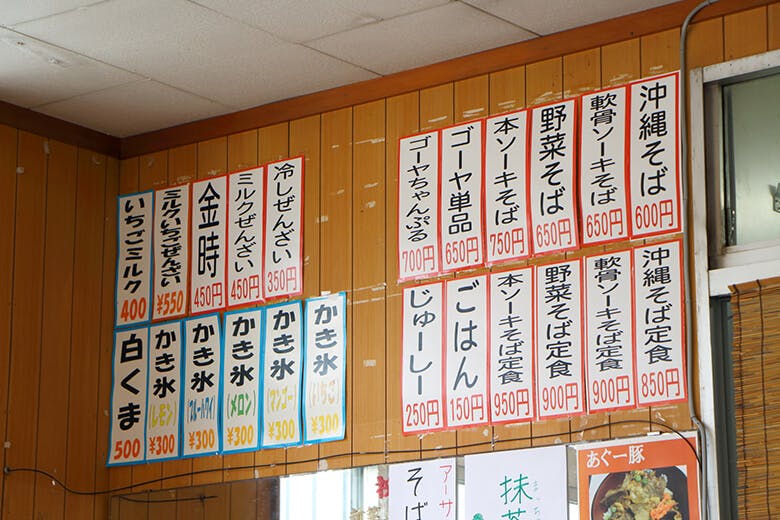 沖縄そば 600円
軟骨ソーキそば 650円
野菜そば 650円
本ソーキそば 750円
ゴーヤ単品 650円
ゴーヤちゃんぷる 700円
沖縄そば定食 850円
軟骨ソーキそば定食 900円
野菜そば定食 900円
本ソーキそば定食 950円
ごはん 150円
じゅーしー 250円
冷しぜんざい 350円
ミルクぜんざい 450円
金時 450円
ミルクいちごぜんざい ¥550
いちごミルク 400
かき氷 (いちご) ¥300
かき氷 (マンゴー) ¥300
かき氷 (メロン) ¥300
かき氷 (ブルーハワイ) ¥300
かき氷 (レモン) ¥300
白くま 500
あぐー豚
抹茶
アーサ
そば